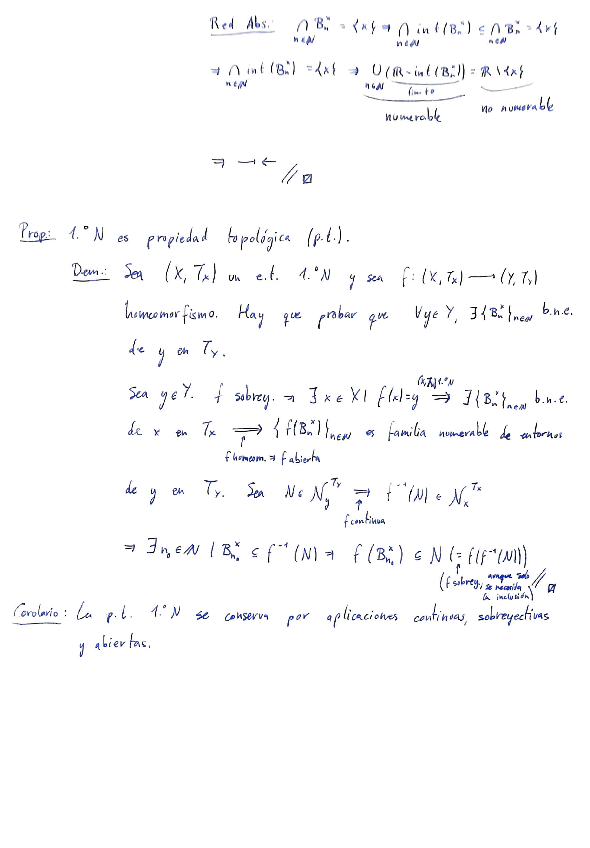 Red Abs.: ⋂_{n∈ℕ} B_n^x = {x} ⇒ ⋂_{n∈ℕ} int(B_n^x) ⊆ ⋂_{n∈ℕ} B_n^x = {x}
⇒ ⋂_{n∈ℕ} int(B_n^x) = {x} ⇒ ⋃_{n∈ℕ} (ℝ - int(B_n^x)) = ℝ \ {x}
finito
numerable no numerable
⇒ →←
// ☒
Prop: 1.º N es propiedad topológica (p.t.).
Dem.: Sea (X, T_X) un e.t. 1.º N y sea f: (X, T_X) ⟶ (Y, T_Y)
homeomorfismo. Hay que probar que ∀y∈Y, ∃{B_n^x}_{n∈ℕ} b.n.e.
de y en T_Y.
Sea y∈Y. f sobrey. ⇒ ∃x∈X | f(x)=y ⇒ ∃{B_n^x}_{n∈ℕ} b.n.e.
(X,T_X) 1.º N
de x en T_X ⇒ {f(B_n^x)}_{n∈ℕ} es familia numerable de entornos
↑
f homeom. ⇒ f abierta
de y en T_Y. Sea N∈N_y^{T_Y} ⇒ f^{-1}(N) ∈ N_x^{T_X}
↑
f continua
⇒ ∃n_0∈ℕ | B_{n_0}^x ⊆ f^{-1}(N) ⇒ f(B_{n_0}^x) ⊆ N (= f(f^{-1}(N)))
↑
(f sobrey, aunque solo se necesita la inclusión) // ☒
Corolario: La p.t. 1.º N se conserva por aplicaciones continuas, sobreyectivas
y abiertas.